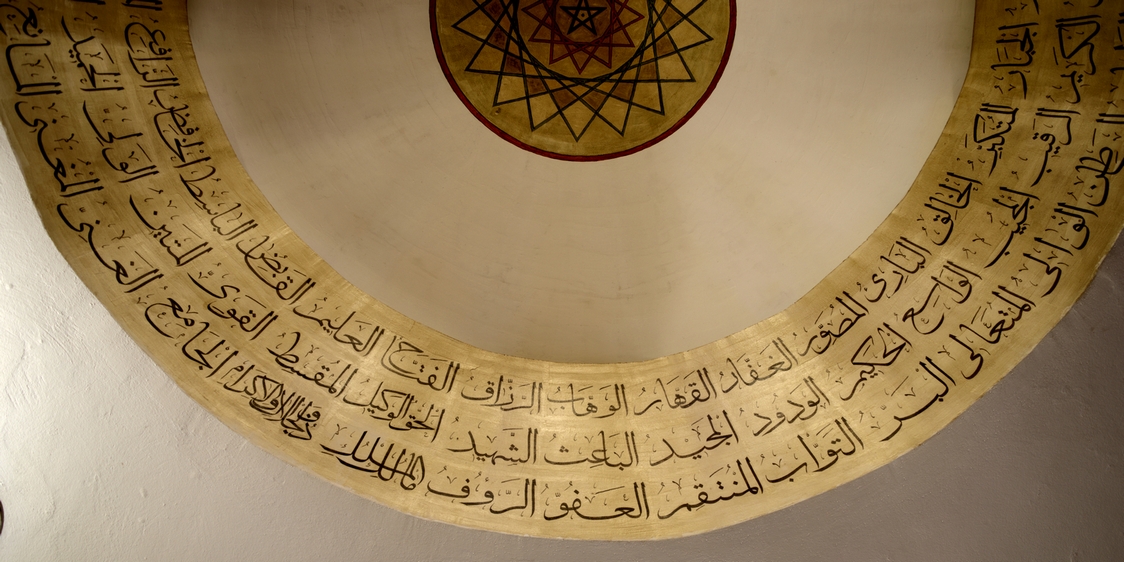 الجبار المتكبر الخالق البارئ المصور الغفار القهار الوهاب الرزاق الفتاح العليم القابض الباسط الخافض الرافع
الكريم الرقيب المجيب الواسع الحكيم الودود المجيد الباعث الشهيد الحق الوكيل المقسط القوي المتين الولي الحميد
الباطن الوالي المتعالي البر التواب المنتقم العفو الرؤوف مالك الملك ذو الجلال والإكرام الجامع الغني المغني المانع